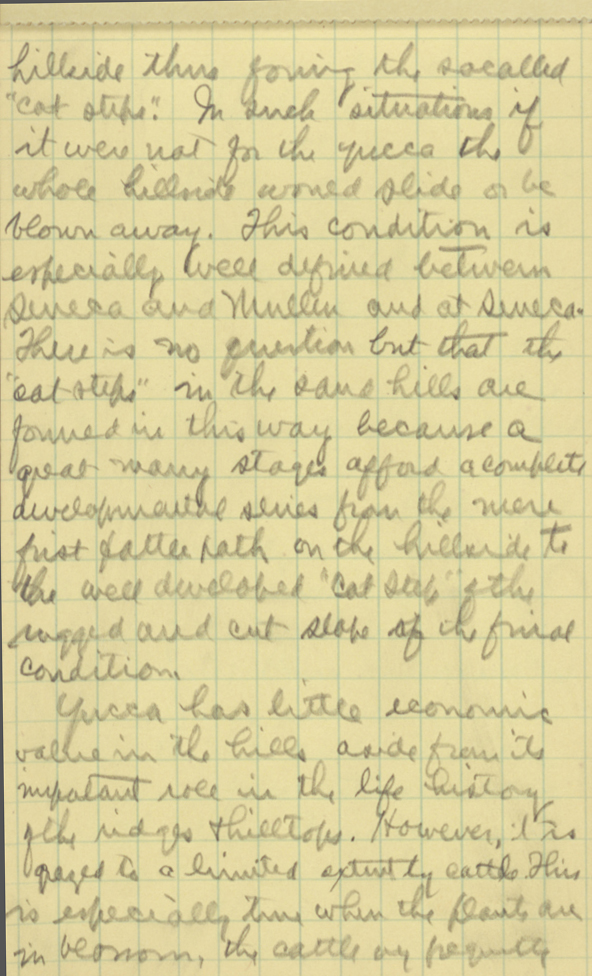 hillside thus foring the socalled
"cat steps". In such situations if
it were not for the yucca the
whole hillside would slide or be
blown away. This condition is
especially well defined between
Seneca and Mullen and at Seneca.
There is no question but that the
"cat steps" in the sand hills are
formed in this way because a
great many stages afford a complete
developmental series from the mere
first cattle path on the hillside to
the well developed "cat step" & the
rugged and cut slope of the final
condition.
Yucca has little economic
value in the hills aside from its
important role in the life history
of the ridges & hilltops. However, it is
grazed to a limited extent by cattle. This
is especially true when the plants are
in blossom, the cattle